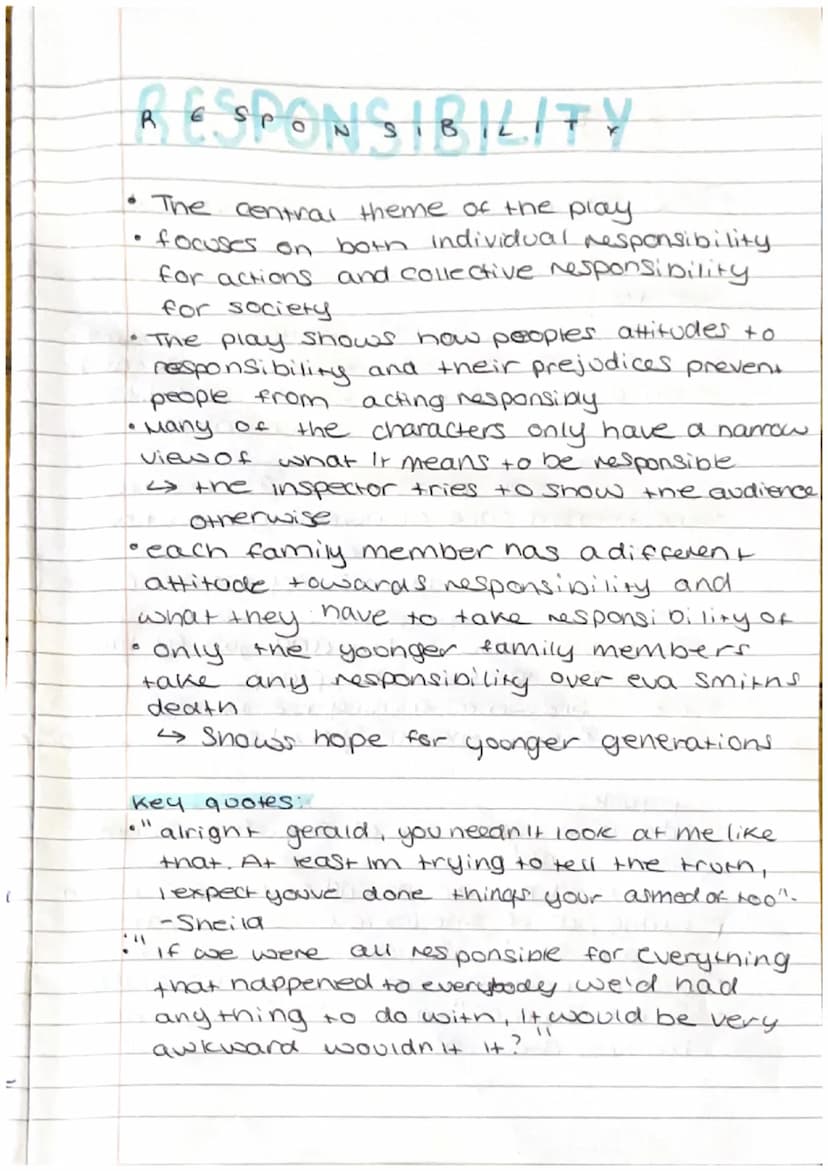 RESPONSIBILITY
• The central theme of the play
• focuses on both individual responsibility
for actions and collective responsibility
for society
• The play shows how peoples attitudes to
responsibility and their prejudices prevent
people from acting responsibly
• Many of the characters only have a narrow
view of what it means to be responsible
↳ the inspector tries to show the audience
otherwise
• each family member has a different
attitude towards responsibility and
what they have to take responsibility of
• only the yoonger family members
take any responsibility over eva smiths
death
↳ Shows hope for yoonger generations
Key quotes:
• "alright gerald, you needn't look at me like
that. At least im trying to tell the truth,
I expect youve done things your ashmed of too".
- Sheila
• "if we were all responsible for everything
that happened to everybody we'd had
anything to do with, it would be very
awkward wouldn't it?"